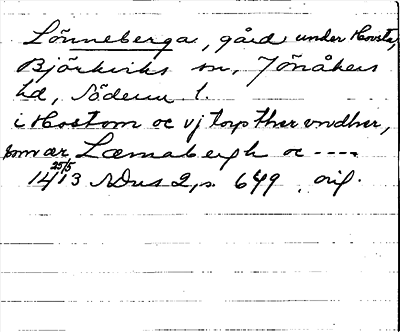 Lönneberga, gård under Hovsta,
Björkviks sn, Jönåkers
hd, Söderm l.
i Hostom oc vj torp ther vndher,
som ær Læmabergh oc ----
14 25/5 13 SDns 2, s. 649 . orig.